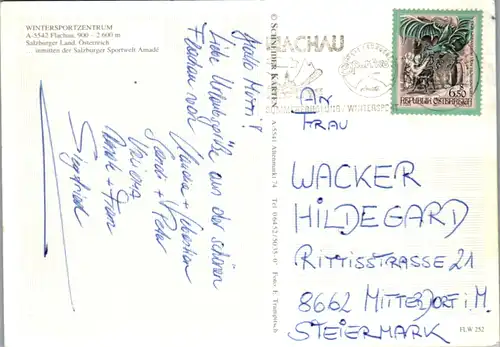 WINTERSPORTZENTRUM
A-5542 Flachau, 900 - 2 600 m
Salzburger Land, Österreich
inmitten der Salzburger Sportwelt Amadé
Hallo Mutti!
Liebe Urlaubsgrüße aus der schönen
Flachau von
Claudia + Sebastian
Sandi + Peter
Siegfried
© SCHNEIDER KARTEN A-5541 Altenmarkt 74 Tel. 06452/5035-0 Foto: E. Trampitsch
FLACHAU
SOMMERERHOLUNG / WINTERSPORT
6.50
REPUBLIK ÖSTERREICH
AN
FRAU
WACKER
HILDEGARD
RITTISSTRASSE 21
8662 MITTERDORF i. M.
STEIERMARK
FLW 252